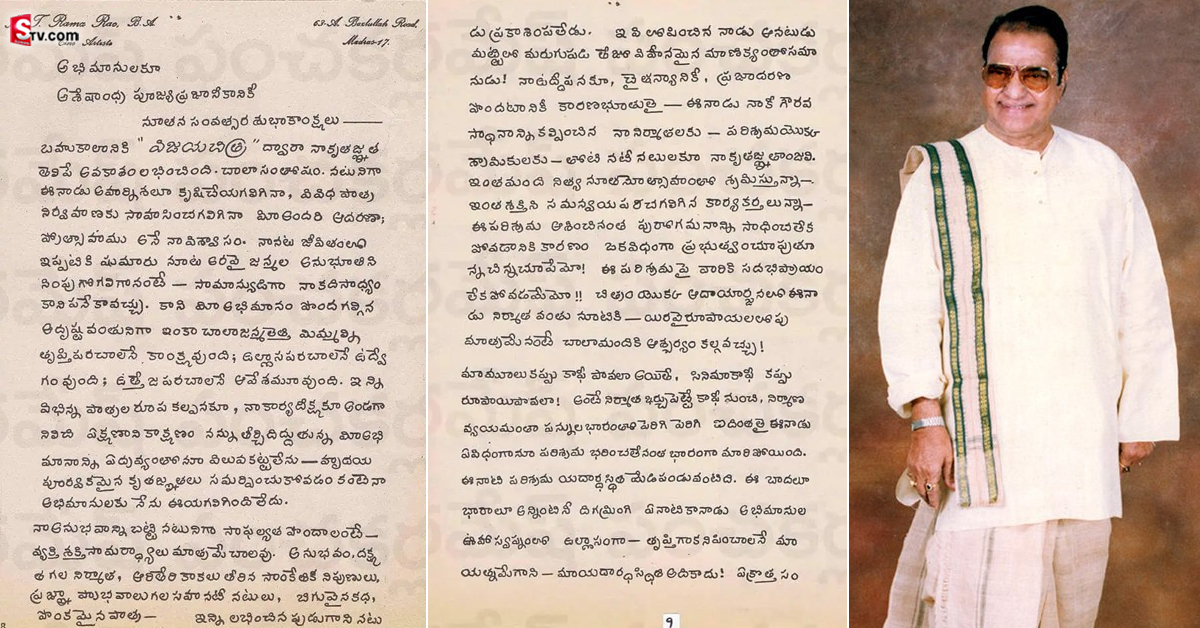 STV.com
N. T. Rama Rao, B.A.
Cine Artiste
63-A, Bazlullah Road,
Madras-17.
అభిమానులకూ
అశేషాంధ్ర పూజ్యప్రజానీకానికీ
నూతన సంవత్సర శుభాకాంక్షలు ———
బహుకాలానికి "విజయచిత్ర" ద్వారా నాకృతజ్ఞత
తెలిపే అవకాశం లభించింది. చాలా సంతోషం. నటునిగా
ఈనాడు అహర్నిశలూ కృషిచేయగలిగినా, వివిధ పాత్ర
నిర్వహణకు సాహసించగలిగినా మీఅందరి ఆదరణా;
ప్రోత్సాహము అనే నా విశ్వాసం. నానట జీవితంలో
ఇప్పటికి షుమారు నూట అరవై జన్మల అనుభూతిని
నింపుగోగలిగానంటే — సామాన్యుడిగా నాకదిసాధ్యం
కానిపనేకావచ్చు. కాని మీఅభిమానం పొందగల్గిన
అదృష్టవంతునిగా ఇంకా చాలాజన్మలెత్తి మిమ్మల్ని
తృప్తిపరచాలనే కాంక్షవుంది; ఉల్లాసపరచాలనే ఉద్వే
గంవుంది; ఉత్తేజపరచాలనే ఆవేశమూవుంది. ఇన్ని
విభిన్న పాత్రల రూప కల్పనకూ, నాకార్యదీక్షకూ అండగా
నిలిచి ఏక్షణానికాక్షణం నన్ను తీర్చిదిద్దుతున్న మీఅభి
మానాన్ని ఏద్రవ్యంతోనూ విలువకట్టలేను — హృదయ
పూర్వకమైన కృతజ్ఞతలు సమర్పించుకోవడం కంటేనా
అభిమానులకు నేను ఈయగలిగిందిలేదు.
నాఅనుభవాన్ని బట్టి నటునిగా సాఫల్యత పొందాలంటే —
వ్యక్తి శక్తిసామర్థ్యాలు మాత్రమే చాలవు. అనుభవం, దక్ష
త గల నిర్మాత, ఆరితేరి కాకలు తీరిన సాంకేతిక నిపుణులు,
ప్రజ్ఞా ప్రాభవాలుగల సహనటీ నటులు, బిగువైనకథ,
పొంకమైనపాత్ర — ఇన్ని లభించిన పుడుగాని నటు
డు ప్రకాశింపలేడు. ఇవి లోపించిన నాడు ఆనటుడు
మట్టిలో మరుగుపడి తేజో విహీనమైన మాణిక్యంతోసమా
నుడు! నాఉద్దీపనకూ, చైతన్యానికీ, ప్రజాదరణ
పొందటానికీ కారణభూతులై — ఈనాడు నాకీ గౌరవ
స్థానాన్నికల్పించిన నానిర్మాతలకు — పరిశ్రమయొక్క
శ్రామికులకు — తోటి నటీనటులకూ నాకృతజ్ఞతాంజలి.
ఇంతమంది నిత్య నూతనోత్సాహంతో శ్రమిస్తున్నా —
ఇంతశక్తిని సమన్వయపరిచగలిగిన కార్యకర్తలున్నా —
ఈపరిశ్రమ ఆశించినంత పురోగమనాన్ని సాధించలేక
పోవడానికికారణం ఒకవిధంగా ప్రభుత్వంచూపుతూ
న్న చిన్నచూపేమో! ఈ పరిశ్రమపై వారికి సదభిప్రాయం
లేకపోవడమేమో!! చిత్రం యొక్క ఆదాయార్జనలో ఈనా
డు నిర్మాత వంతు నూటికి — యిరవైరూపాయలలోపు
మాత్రమేనంటే చాలామందికి ఆశ్చర్యం కల్గవచ్చు!
మామూలుకప్పు కాఫీ పావలా అయితే, సినిమాకాఫీ కప్పు
రూపాయిపావలా! అంటే నిర్మాత ఖర్చుపెట్టే కాఫీ నుంచి, నిర్మాణ
వ్యయమంతా పన్నులభారంతో పెరిగి పెరిగి ఐదింతలై ఈనాడు
ఏవిధంగానూ పరిశ్రమ భరించలేనంత భారంగా మారిపోయింది.
ఈనాటి పరిశ్రమ యదార్థస్థితి మేడిపండువంటిది. ఈ బాదలూ
భారాలూ అన్నింటినీ దిగమ్రింగి ఏనాటికానాడు అభిమానుల
ఊహాస్వప్నంలో ఉల్లాసంగా — తృప్తిగాకనిపించాలనే మా
యత్నమేగాని — మాయదార్థస్థితి అదికాదు! ఏక్రొత్త సం
9